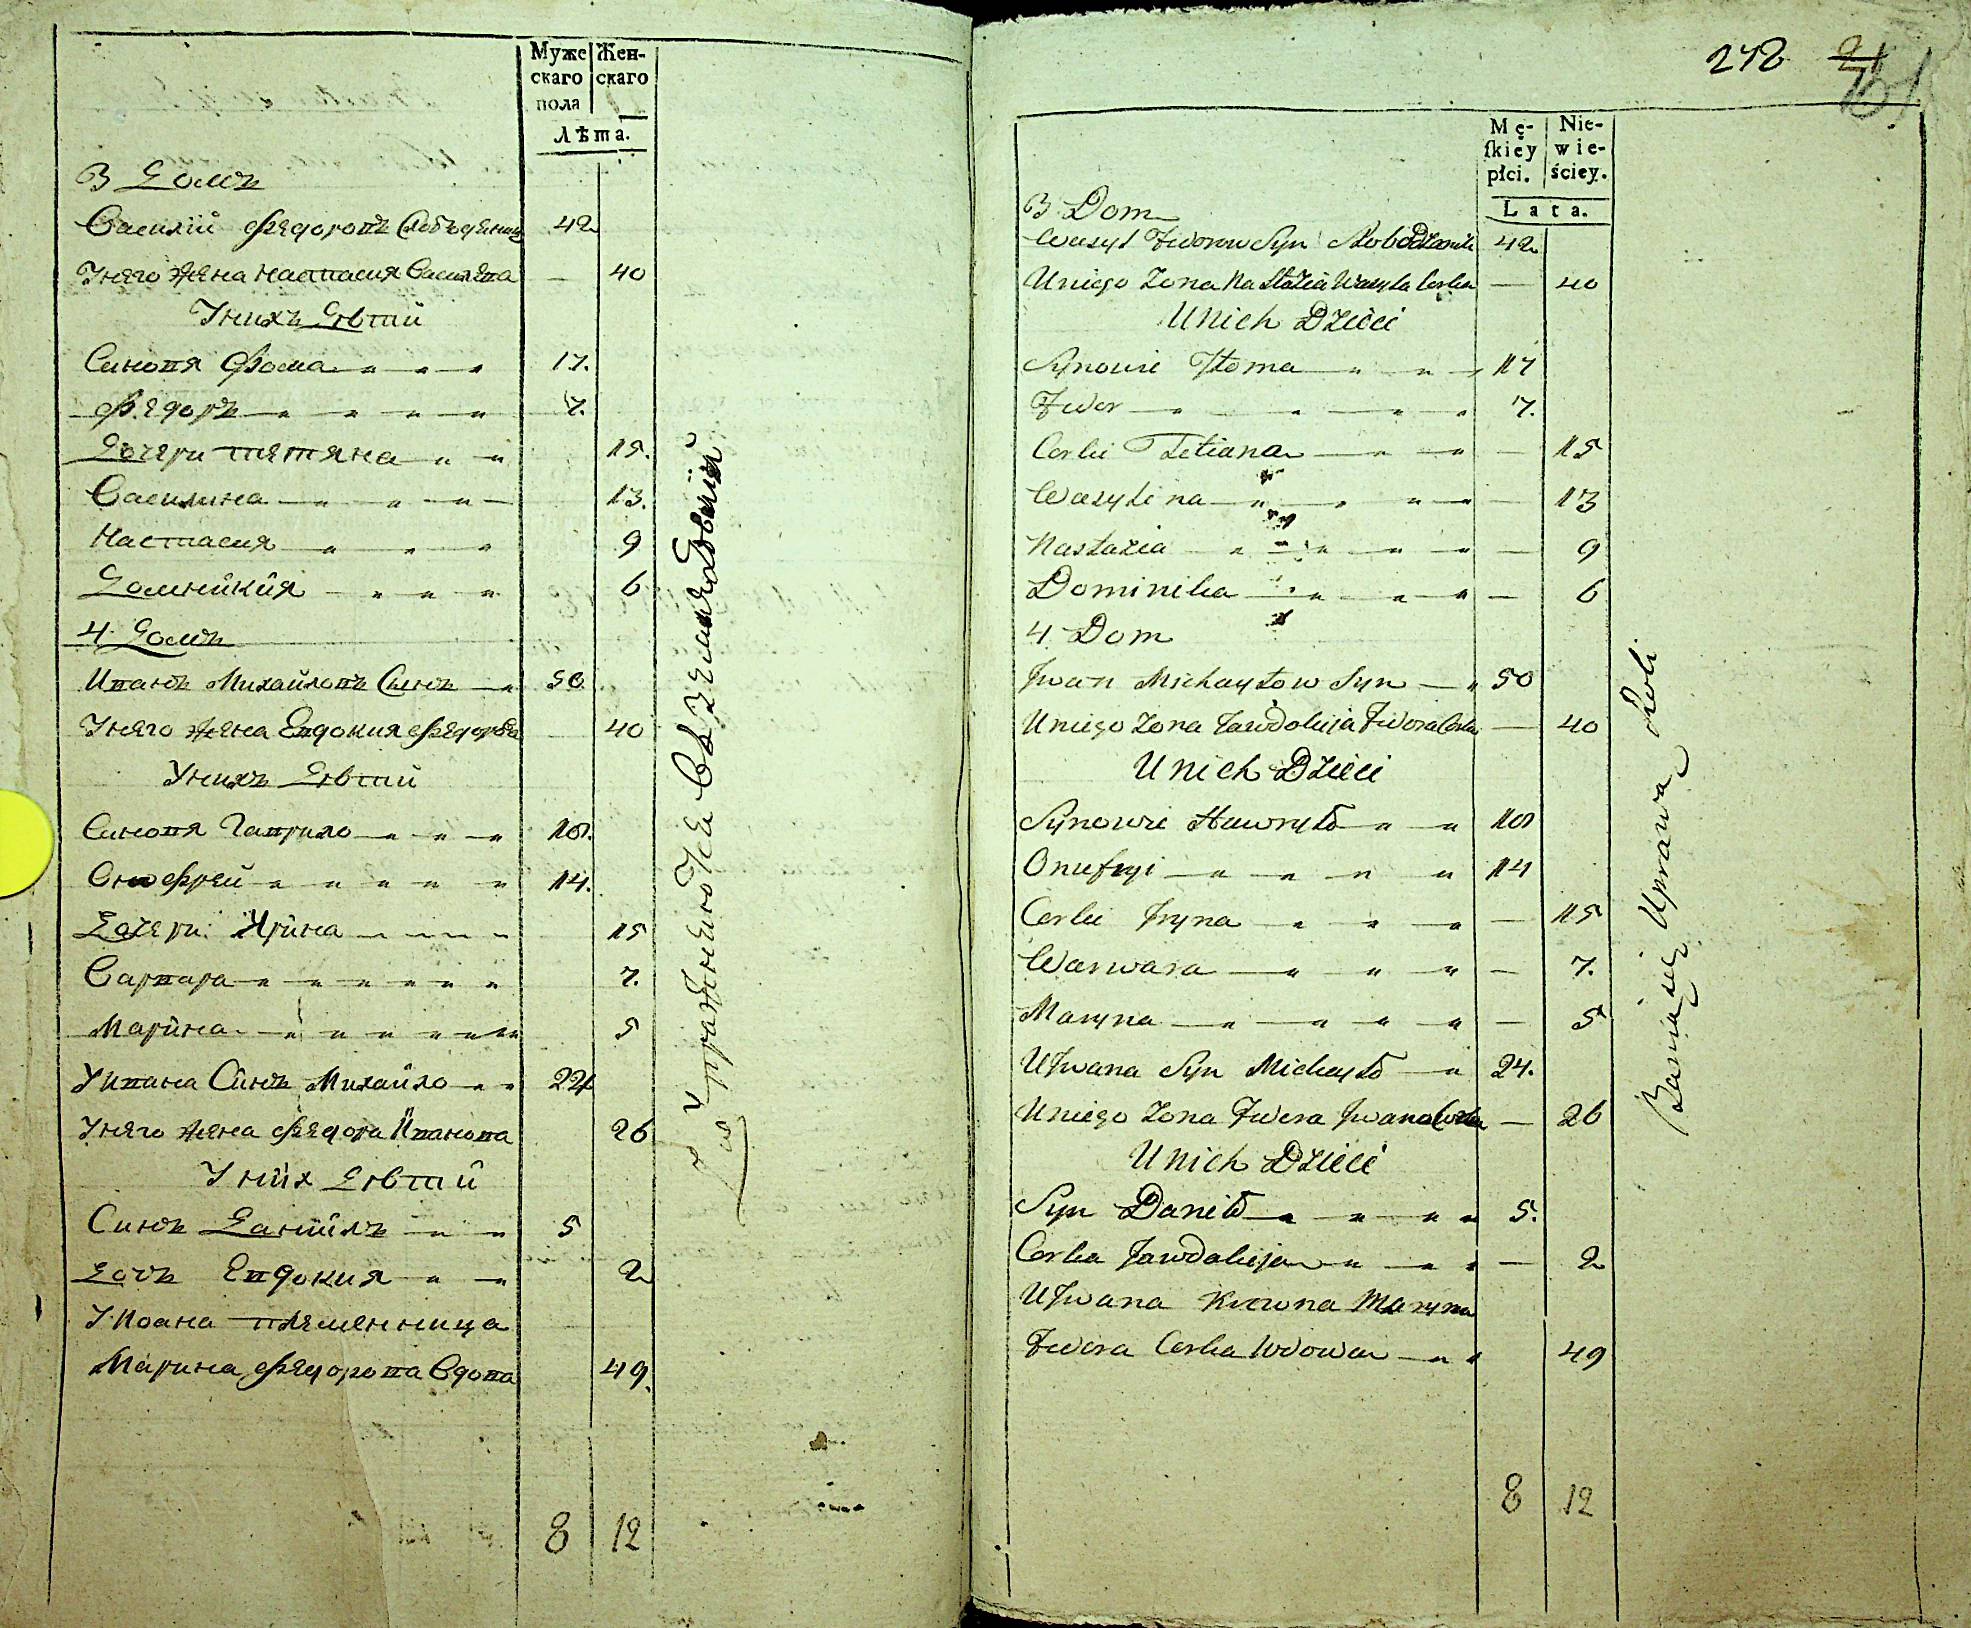 Муже Жен-
скаго скаго
пола
Лѣта.
3 Домъ
Василій Федоровъ Слободяникъ 42
У него жена Настасия Василева — 40
У нихъ дѣтій
Синовя Фома 17.
Федоръ 7.
Дочери Тетяна 15.
Василина 13.
Настасия 9
Домникия 6
4. Домъ
Иванъ Михайловъ Синъ 50.
У него жена Евдокия Федорова 40
У нихъ дѣтий
Синовя Гаврило 18.
Онофрей 14.
Дочери: Ирина 15
Варвара 7.
Марина 5
У Ивана Синъ Михайло 24
У него жена Федора Иванова 26
У них дѣтий
Синъ Даниилъ 5
Дочъ Евдокия 2
У Иоана племенница
Марина Федорова Вдова 49.
8 12
Упражнеются в земледелии
242 21
Mę- Nie-
ſkiey wie-
płci. ściey.
Lata.
3 Dom
Wasyl Fedorow Syn Słobodzianik 42
U niego Zona Nastazia Wasyla Corka — 40
U nich Dzieci
Synowie Htoma 17
Fedor 7.
Corki Tetiana — 15
Wasylina — 13
Nastazia — 9
Dominika — 6
4 Dom
Jwan Michayłow Syn 50
U niego Zona Jawdokija Fedora Corka — 40
U nich Dzieci
Synowie Hawryło 18
Onufryi 14
Corki Jryna — 15
Warwara — 7.
Maryna — 5
U Jwana Syn Michayło 24.
U niego Zona Fedora Jwana Corka — 26
U nich Dzieci
Syn Daniło 5.
Corka Jawdokija — 2
U Jwana Krewna Maryna
Fedora Corka Wdowa 49
8 12
Bawią się Uprawą Roli